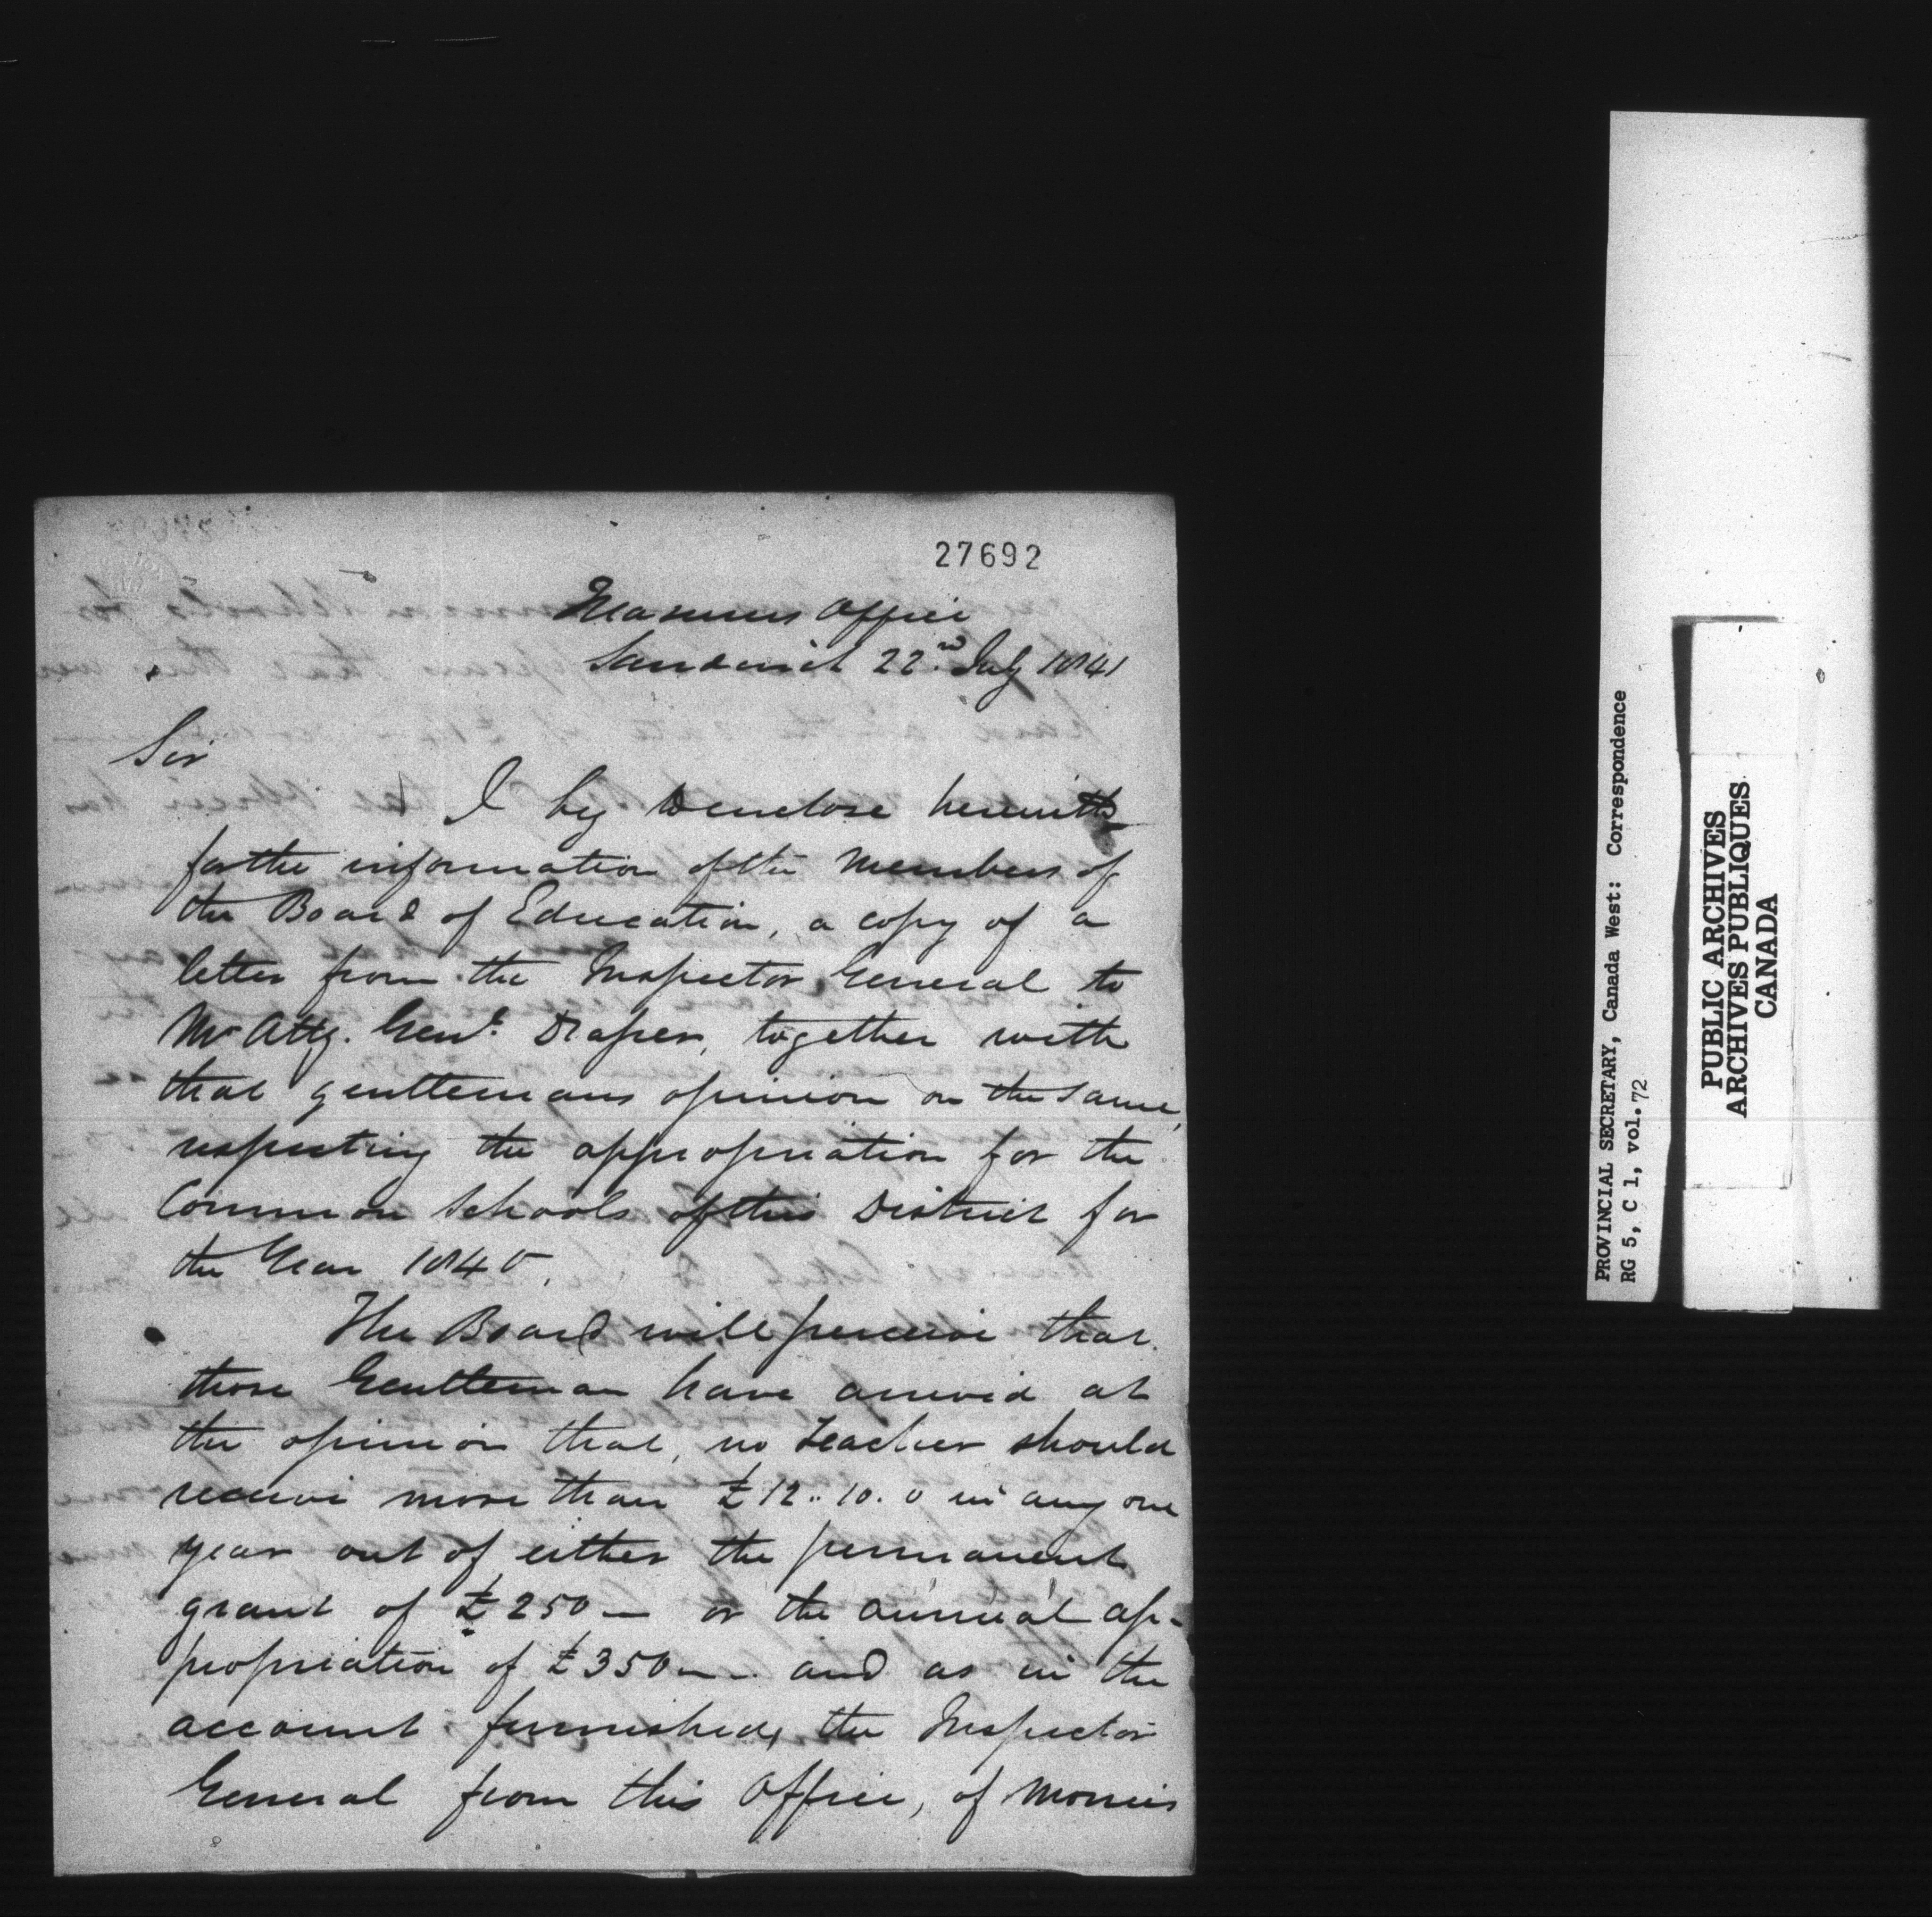 27692
Treasurers Office
Sandwich 22nd July 1841
Sir
I beg to enclose herewith
for the information of the Members of
the Board of Education, a copy of a
letter from the Inspector General to
Mr Atty. Genl. Draper, together with
that gentlemans opinion on the same,
respecting the appropriation for the
Common Schools of this District for
the Year 1840.
The Board will perceive that
those Gentleman have arrived at
the opinion that, no Teacher should
receive more than £12..10.0 in any one
year out of either the permanent
grant of £250— or the annual ap-
propriation of £350—. and as in the
account furnished, the Inspector
General from this Office, of Monies
PROVINCIAL SECRETARY, Canada West: Correspondence
RG 5, C 1, vol. 72
PUBLIC ARCHIVES
ARCHIVES PUBLIQUES
CANADA